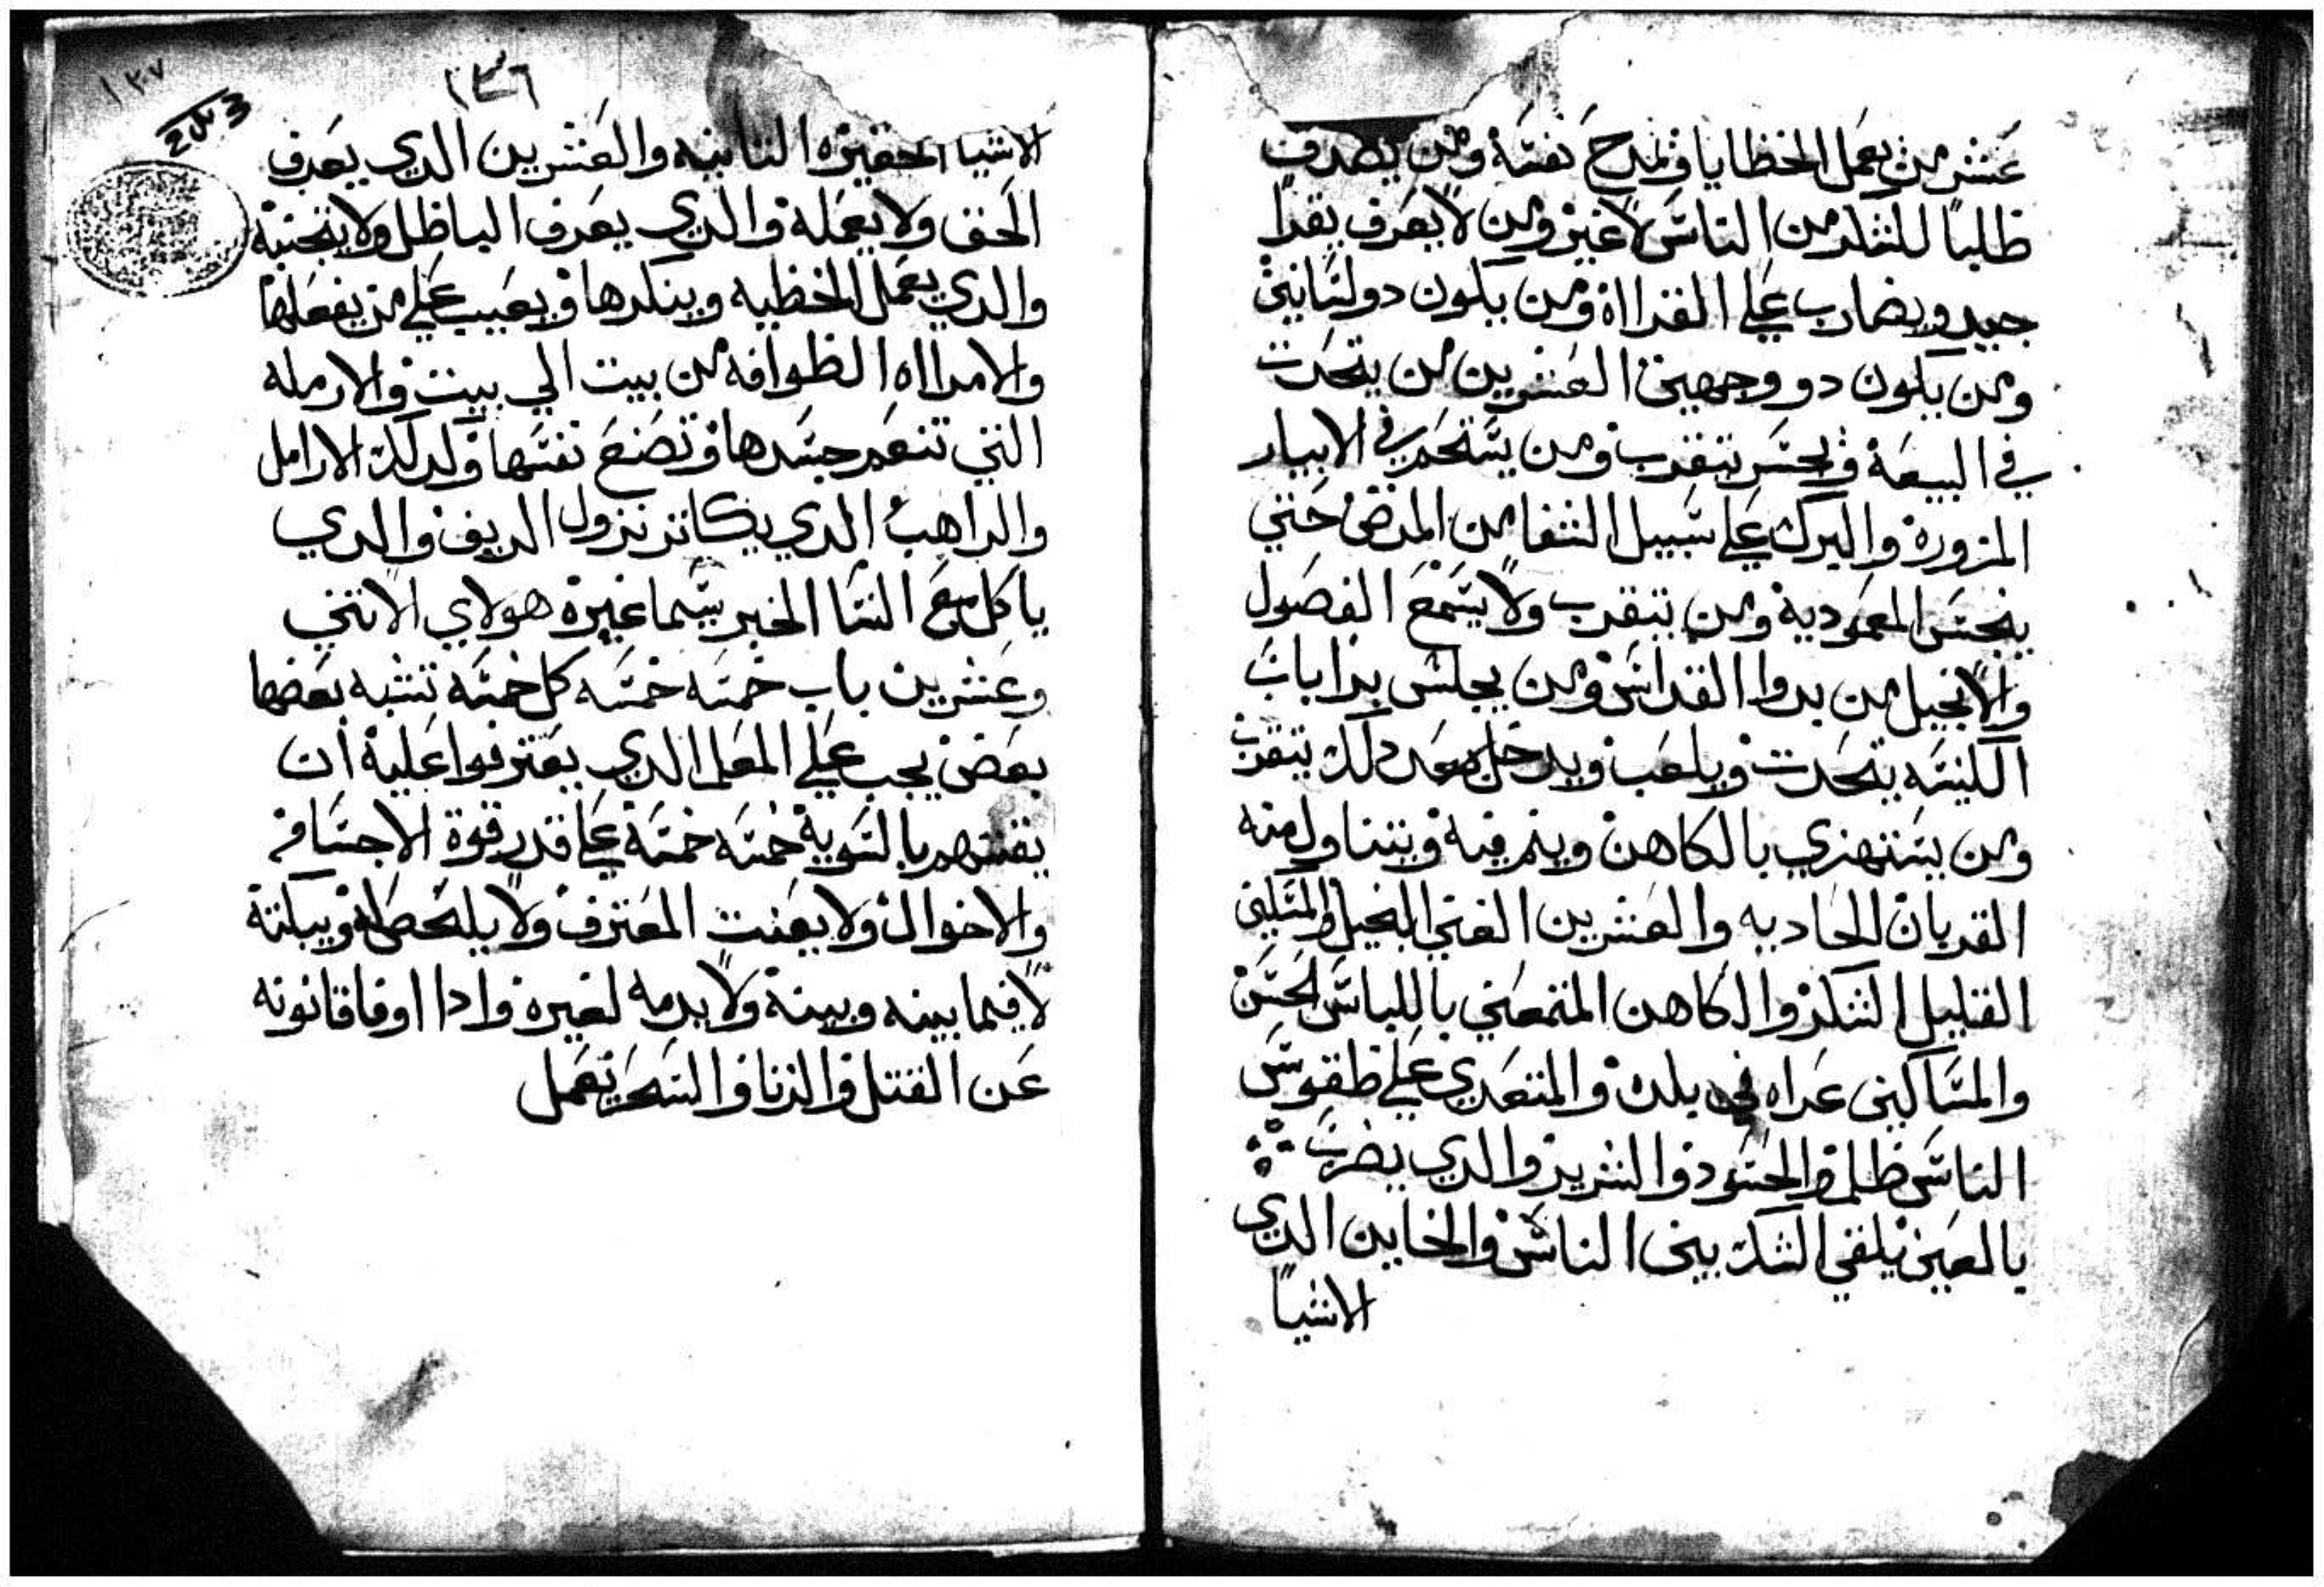 عشر من يعمل الخظايا ويمدح نفسه ومن يصدف
ظلبا للشكر من الناس لا غير ومن لا يعرف يقرا
جيد ويضارب علي القرااة ومن يكون دو لسانين
ومن يكون دو وجهين العشرين من يتحدت
في البيعة ويحسر يتقرب ومن يستحم في الابيار
المزورة والبرك علي سبيل الشفا من المرض حتي
ينجس المعمودية ومن يتقرب ولا يسمع الفصول
والانجيل من بدوا القداس ومن يجلس برا باب
الكنيسه يتحدت ويلعب ويدخل بعد دلك يتقرب
ومن يستهزي بالكاهن وينم فيه ويتناول منه
القربان الحاديه والعشرين الغني البخيل والمسكين
القليل الشكر والكاهن المتمعني باللباس الحسن
والمساكين عراه في بلده والمتعدي علي طقوس
الناس ظلم والحسود والشرير والدي يضرب
بالعين يلقي الشك بين الناس والخاين الدي
الاشيا
١٣٦
١٣٧
الاشيا الحقيره التانيه والعشرين الدي يعرف
الحق ولا يعمله والدي يعرف الباظل ولا يتجنبه
والدي يعمل الخظيه وينكرها ويعيب علي من يفعلها
والامرااه الظوافه من بيت الي بيت والارمله
التي تنعم جسدها وتصنع نفسها وكدلك الارامل
والراهب الدي يكاتر نزول الريف والدي
ياكل مع النسا الخبر سيما غيره هولاي الاتني
وعشرين باب خمسه خمسه كل خمسه تشبه بعضها
بعض يجب علي المعلم الدي يعترفوا عليه ان
يفتشهم بالسوية خمسه خمسة علي قدر قوة الاجساد
والاحوال ولا يعنت المعترف ولا يلحظه ويبكته
لا فيما بينه وبينه ولا يرمه لغيره وادا اوفا قانونه
عن القتل والزنا والسحر يعمل